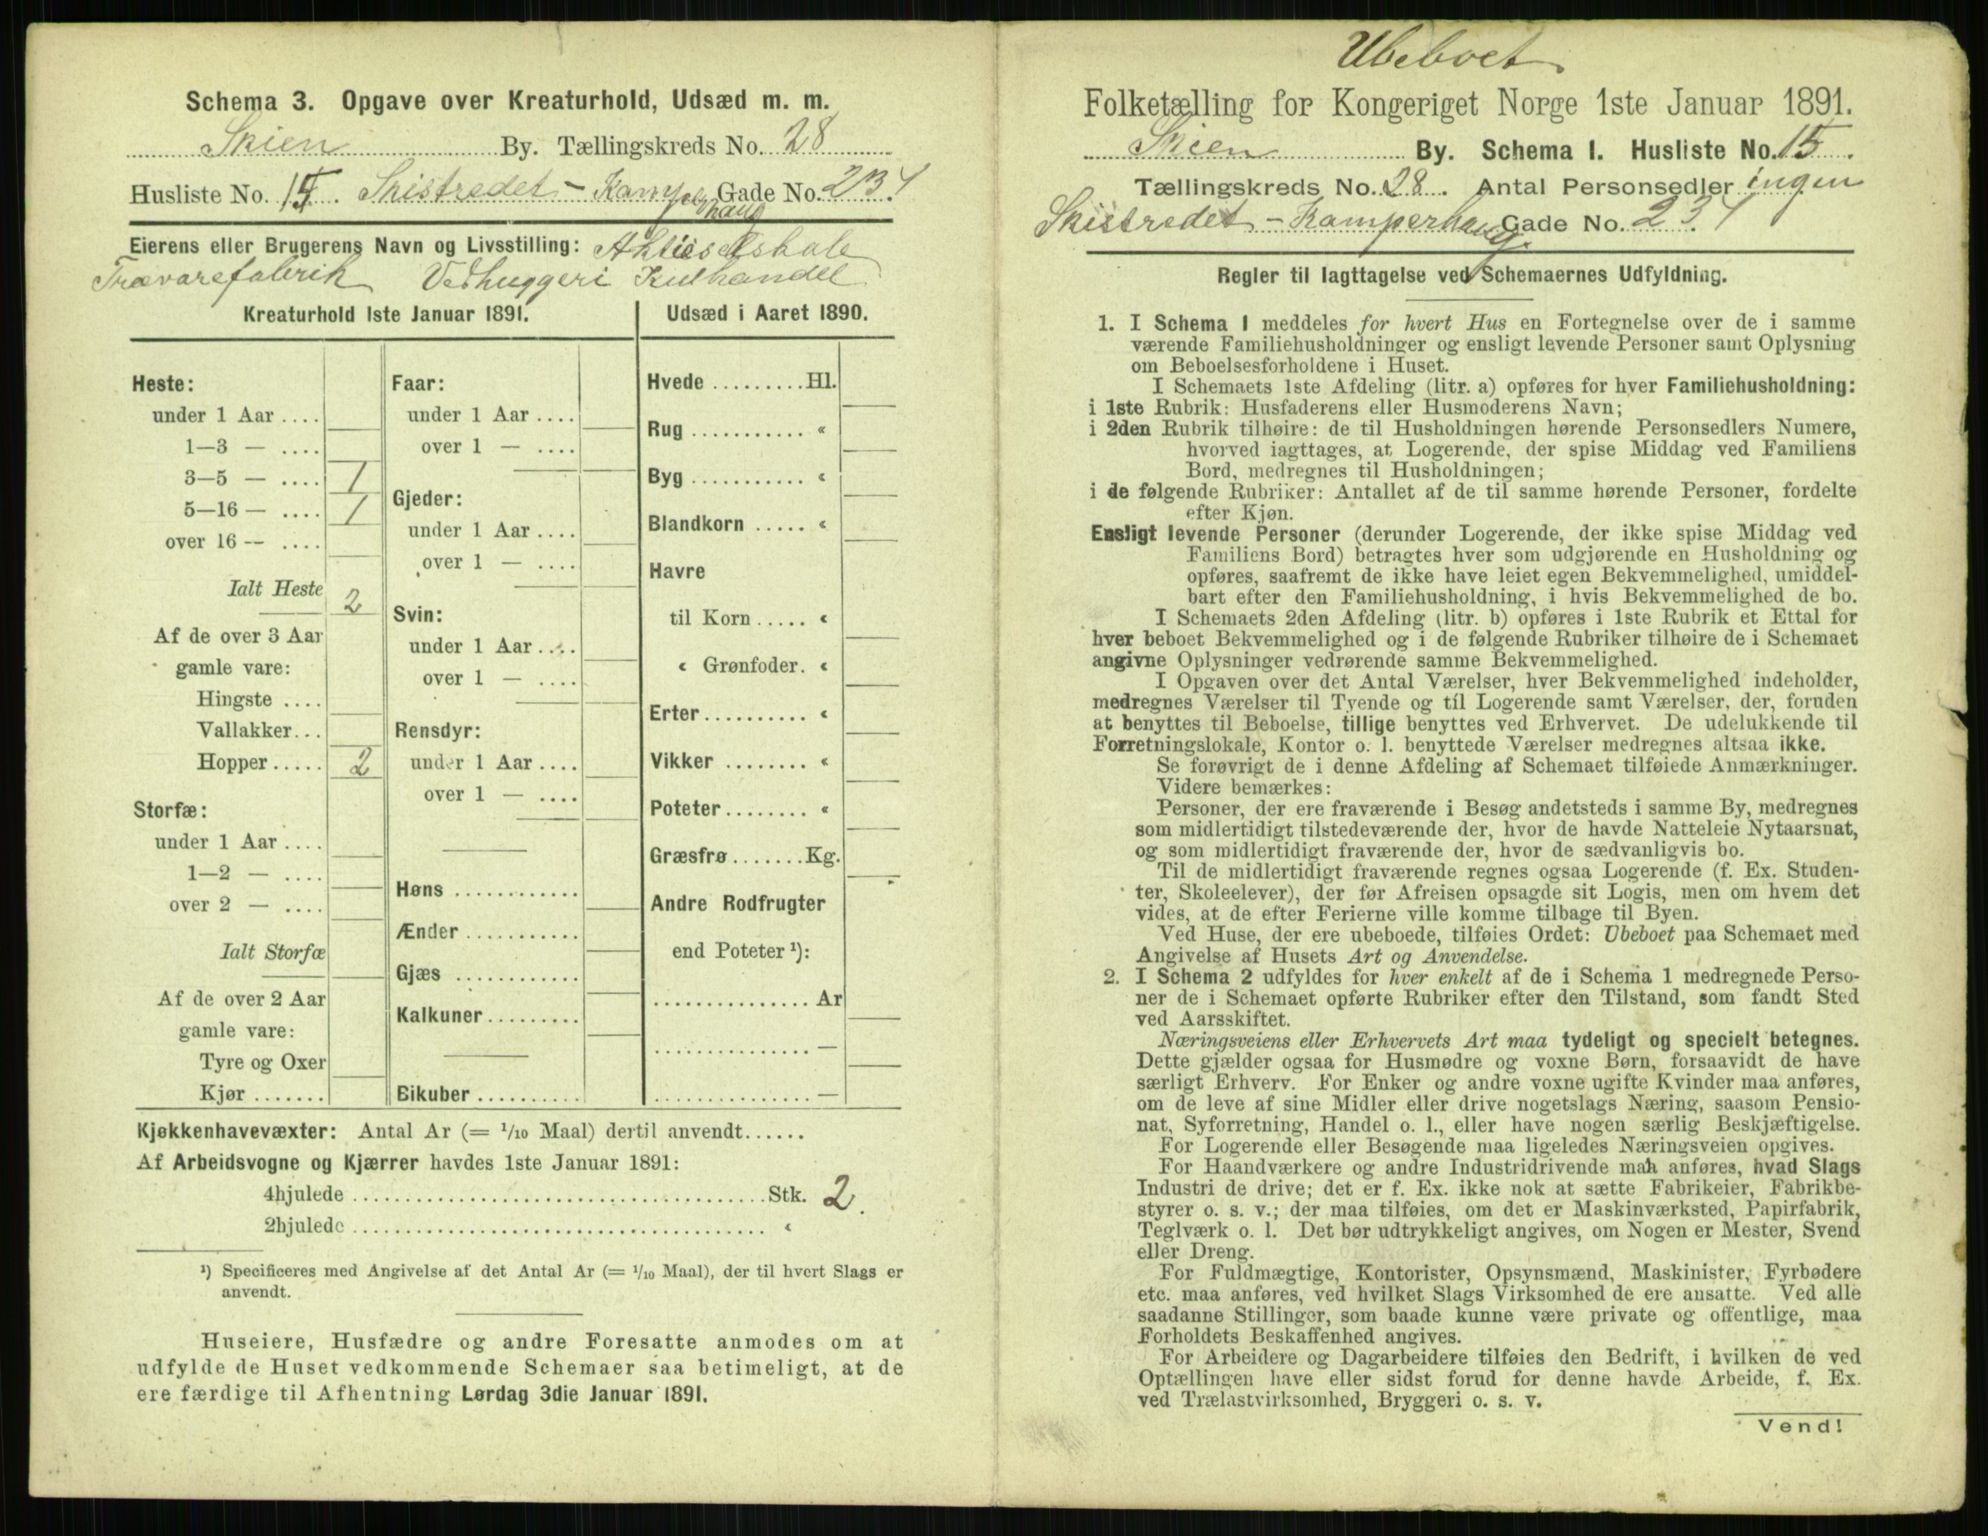 Schema 3. Opgave over Kreaturhold, Udsæd m. m.
Skien By. Tællingskreds No. 28
Husliste No. 15. Skistredet - Kamperhaug Gade No. 234
Eierens eller Brugerens Navn og Livsstilling: Aktieselskab
Trævarefabrik Vedhuggeri Kulhandel
Kreaturhold 1ste Januar 1891.
Heste:
under 1 Aar ....
1—3 — ....
3—5 — .... 1
5—16 — .... 1
over 16 — ....
Ialt Heste 2
Af de over 3 Aar
gamle vare:
Hingste ....
Vallakker...
Hopper ..... 2
Storfæ:
under 1 Aar ....
1—2 — ....
over 2 — ....
Ialt Storfæ
Af de over 2 Aar
gamle vare:
Tyre og Oxer
Kjør .......
Faar:
under 1 Aar ....
over 1 — ....
Gjeder:
under 1 Aar ....
over 1 — ....
Svin:
under 1 Aar ....
over 1 — ....
Rensdyr:
under 1 Aar ....
over 1 — ....
Høns ............
Ænder ...........
Gjæs ............
Kalkuner.........
Bikuber ..........
Udsæd i Aaret 1890.
Hvede .........Hl.
Rug ........... «
Byg ........... «
Blandkorn ..... «
Havre
til Korn ..... «
« Grønfoder. «
Erter.......... «
Vikker ........ «
Poteter ........ «
Græsfrø.......Kg.
Andre Rodfrugter
end Poteter ¹):
............... Ar
............... —
............... —
Kjøkkenhavevæxter: Antal Ar (= 1/10 Maal) dertil anvendt......
Af Arbeidsvogne og Kjærrer havdes 1ste Januar 1891:
4hjulede ........................................Stk. 2.
2hjulede ........................................ «
¹) Specificeres med Angivelse af det Antal Ar (= 1/10 Maal), der til hvert Slags er
anvendt.
Huseiere, Husfædre og andre Foresatte anmodes om at
udfylde de Huset vedkommende Schemaer saa betimeligt, at de
ere færdige til Afhentning Lørdag 3die Januar 1891.
Ubeboet
Folketælling for Kongeriget Norge 1ste Januar 1891.
Skien By. Schema 1. Husliste No. 15.
Tællingskreds No. 28. Antal Personsedler ingen
Skistredet - Kamperhaug Gade No. 234
Regler til Iagttagelse ved Schemaernes Udfyldning.
1. I Schema 1 meddeles for hvert Hus en Fortegnelse over de i samme
værende Familiehusholdninger og ensligt levende Personer samt Oplysning
om Beboelsesforholdene i Huset.
I Schemaets 1ste Afdeling (litr. a) opføres for hver Familiehusholdning:
i 1ste Rubrik: Husfaderens eller Husmoderens Navn;
i 2den Rubrik tilhøire: de til Husholdningen hørende Personsedlers Numere,
hvorved iagttages, at Logerende, der spise Middag ved Familiens
Bord, medregnes til Husholdningen;
i de følgende Rubriker: Antallet af de til samme hørende Personer, fordelte
efter Kjøn.
Ensligt levende Personer (derunder Logerende, der ikke spise Middag ved
Familiens Bord) betragtes hver som udgjørende en Husholdning og
opføres, saafremt de ikke have leiet egen Bekvemmelighed, umiddel-
bart efter den Familiehusholdning, i hvis Bekvemmelighed de bo.
I Schemaets 2den Afdeling (litr. b) opføres i 1ste Rubrik et Ettal for
hver beboet Bekvemmelighed og i de følgende Rubriker tilhøire de i Schemaet
angivne Oplysninger vedrørende samme Bekvemmelighed.
I Opgaven over det Antal Værelser, hver Bekvemmelighed indeholder,
medregnes Værelser til Tyende og til Logerende samt Værelser, der, foruden
at benyttes til Beboelse, tillige benyttes ved Erhvervet. De udelukkende til
Forretningslokale, Kontor o. l. benyttede Værelser medregnes altsaa ikke.
Se forøvrigt de i denne Afdeling af Schemaet tilføiede Anmærkninger.
Videre bemærkes:
Personer, der ere fraværende i Besøg andetsteds i samme By, medregnes
som midlertidigt tilstedeværende der, hvor de havde Natteleie Nytaarsnat,
og som midlertidigt fraværende der, hvor de sædvanligvis bo.
Til de midlertidigt fraværende regnes ogsaa Logerende (f. Ex. Studen-
ter, Skoleelever), der før Afreisen opsagde sit Logis, men om hvem det
vides, at de efter Ferierne ville komme tilbage til Byen.
Ved Huse, der ere ubeboede, tilføies Ordet: Ubeboet paa Schemaet med
Angivelse af Husets Art og Anvendelse.
2. I Schema 2 udfyldes for hver enkelt af de i Schema 1 medregnede Perso-
ner de i Schemaet opførte Rubriker efter den Tilstand, som fandt Sted
ved Aarsskiftet.
Næringsveiens eller Erhvervets Art maa tydeligt og specielt betegnes.
Dette gjælder ogsaa for Husmødre og voxne Børn, forsaavidt de have
særligt Erhverv. For Enker og andre voxne ugifte Kvinder maa anføres,
om de leve af sine Midler eller drive nogetslags Næring, saasom Pensio-
nat, Syforretning, Handel o. l., eller have nogen særlig Beskjæftigelse.
For Logerende eller Besøgende maa ligeledes Næringsveien opgives.
For Haandværkere og andre Industridrivende maa anføres, hvad Slags
Industri de drive; det er f. Ex. ikke nok at sætte Fabrikeier, Fabrikbe-
styrer o. s. v.; der maa tilføies, om det er Maskinværksted, Papirfabrik,
Teglværk o. l. Det bør udtrykkeligt angives, om Nogen er Mester, Svend
eller Dreng.
For Fuldmægtige, Kontorister, Opsynsmænd, Maskinister, Fyrbødere
etc. maa anføres, ved hvilket Slags Virksomhed de ere ansatte. Ved alle
saadanne Stillinger, som baade kunne være private og offentlige, maa
Forholdets Beskaffenhed angives.
For Arbeidere og Dagarbeidere tilføies den Bedrift, i hvilken de ved
Optællingen have eller sidst forud for denne havde Arbeide, f. Ex.
ved Trælastvirksomhed, Bryggeri o. s. v.
Vend!